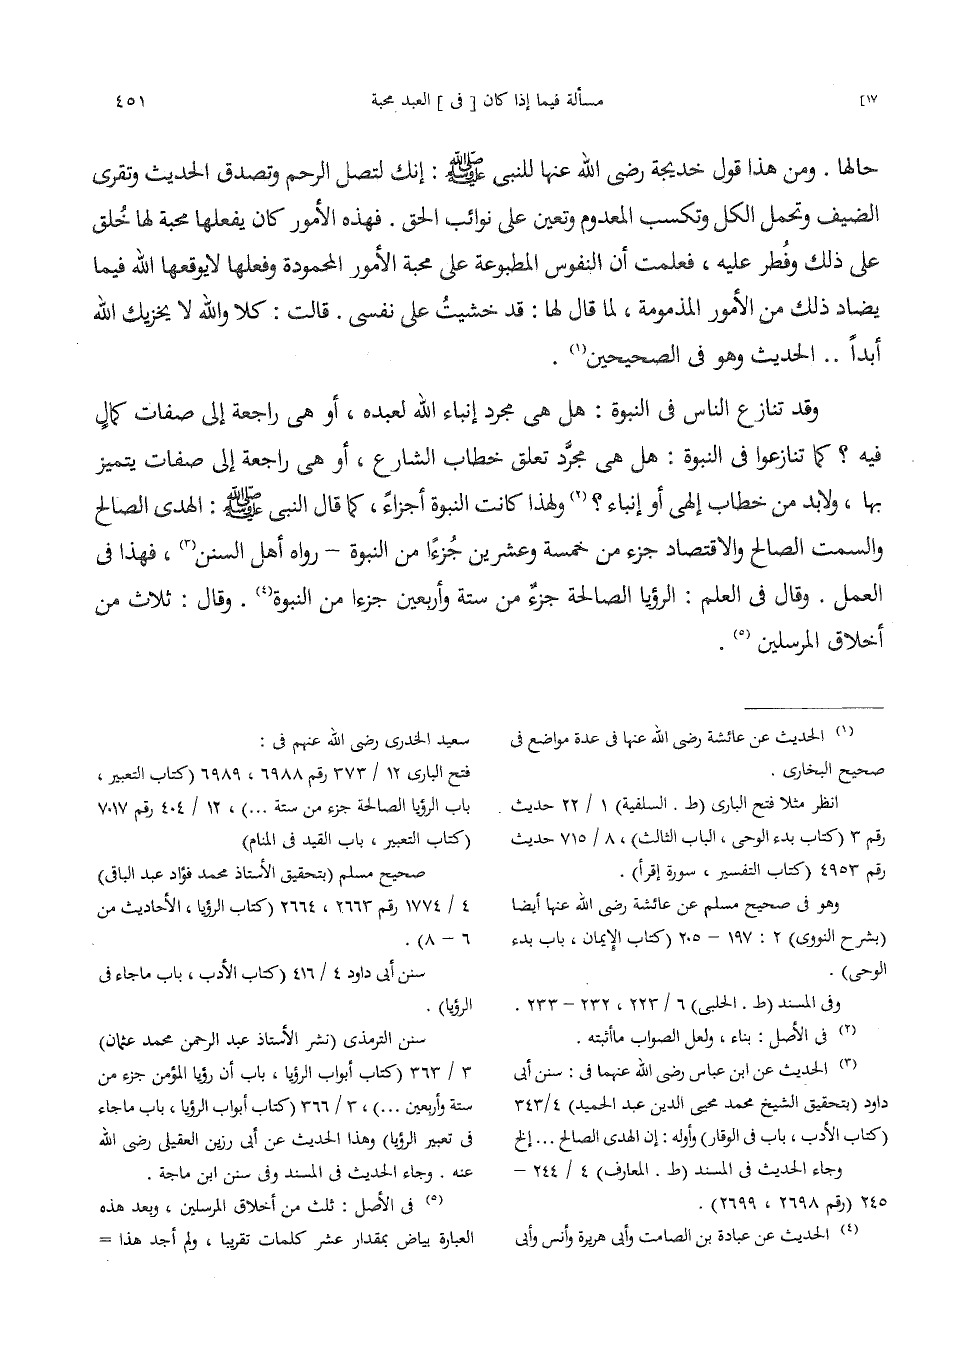 ١٧]
مسألة فيما إذا كان [ فى ] العبد محبة
٤٥١
حالها . ومن هذا قول خديجة رضى الله عنها للنبى ﷺ : إنك لتصل الرحم وتصدق الحديث وتقرى
الضيف وتحمل الكل وتكسب المعدوم وتعين على نوائب الحق . فهذه الأمور كان يفعلها محبة لها خُلق
على ذلك وفُطر عليه ، فعلمت أن النفوس المطبوعة على محبة الأمور المحمودة وفعلها لايوقعها الله فيما
يضاد ذلك من الأمور المذمومة ، لما قال لها : قد خشيتُ على نفسى . قالت : كلا والله لا يخزيك الله
أبداً .. الحديث وهو فى الصحيحين(١) .
وقد تنازع الناس فى النبوة : هل هى مجرد إنباء الله لعبده ، أو هى راجعة إلى صفات كمالٍ
فيه ؟ كما تنازعوا فى النبوة : هل هى مجرَّد تعلق خطاب الشارع ، أو هى راجعة إلى صفات يتميز
بها ، ولابد من خطاب إلهى أو إنباء ؟(٢) ولهذا كانت النبوة أجزاءً ، كما قال النبى ﷺ : الهدى الصالح
والسمت الصالح والاقتصاد جزء من خمسة وعشرين جُزءًا من النبوة – رواه أهل السنن(٣) ، فهذا فى
العمل . وقال فى العلم : الرؤيا الصالحة جزءٌ من ستة وأربعين جزءا من النبوة(٤) . وقال : ثلاث من
أخلاق المرسلين (٥) .
(١) الحديث عن عائشة رضى الله عنها فى عدة مواضع فى
صحيح البخارى .
انظر مثلا فتح البارى (ط . السلفية) ١ / ٢٢ حديث
رقم ٣ (كتاب بدء الوحى ، الباب الثالث) ، ٨ / ٧١٥ حديث
رقم ٤٩٥٣ (كتاب التفسير ، سورة إقرأ) .
وهو فى صحيح مسلم عن عائشة رضى الله عنها أيضا
(بشرح النووى) ٢ : ١٩٧ – ٢٠٥ (كتاب الإيمان ، باب بدء
الوحى) .
وفى المسند (ط . الحلبى) ٦ / ٢٢٣ ، ٢٣٢ – ٢٣٣ .
(٢) فى الأصل : بناء ، ولعل الصواب ماأثبته .
(٣) الحديث عن ابن عباس رضى الله عنهما فى : سنن أبى
داود (بتحقيق الشيخ محمد محيى الدين عبد الحميد) ٣٤٣/٤
(كتاب الأدب ، باب فى الوقار) وأوله : إن الهدى الصالح ... إلخ
وجاء الحديث فى المسند (ط . المعارف) ٤ / ٢٤٤ –
٢٤٥ (رقم ٢٦٩٨ ، ٢٦٩٩) .
(٤) الحديث عن عبادة بن الصامت وأبى هريرة وأنس وأبى
سعيد الخدرى رضى الله عنهم فى :
فتح البارى ١٢ / ٣٧٣ رقم ٦٩٨٨ ، ٦٩٨٩ (كتاب التعبير ،
باب الرؤيا الصالحة جزء من ستة ...) ، ١٢ / ٤٠٤ رقم ٧٠١٧
(كتاب التعبير ، باب القيد فى المنام)
صحيح مسلم (بتحقيق الأستاذ محمد فؤاد عبد الباقى)
٤ / ١٧٧٤ رقم ٢٦٦٣ ، ٢٦٦٤ (كتاب الرؤيا ، الأحاديث من
٦ – ٨) .
سنن أبى داود ٤ / ٤١٦ (كتاب الأدب ، باب ماجاء فى
الرؤيا) .
سنن الترمذى (نشر الأستاذ عبد الرحمن محمد عثمان)
٣ / ٣٦٣ (كتاب أبواب الرؤيا ، باب أن رؤيا المؤمن جزء من
ستة وأربعين ...) ، ٣ / ٣٦٦ (كتاب أبواب الرؤيا ، باب ماجاء
فى تعبير الرؤيا) وهذا الحديث عن أبى رزين العقيلى رضى الله
عنه . وجاء الحديث فى المسند وفى سنن ابن ماجة .
(٥) فى الأصل : ثلث من أخلاق المرسلين ، وبعد هذه
العبارة بياض بمقدار عشر كلمات تقريبا ، ولم أجد هذا =